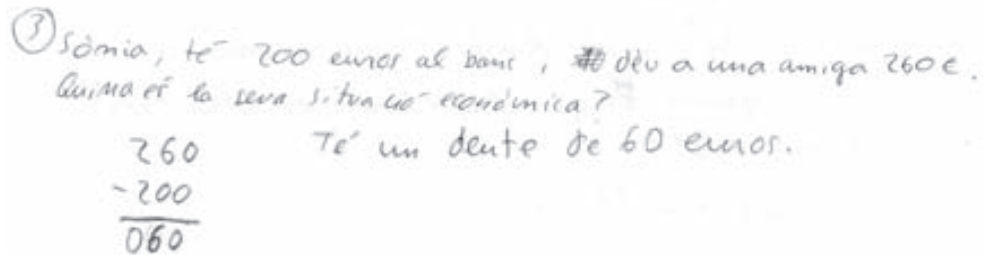 ③ Sònia, té 200 euros al banc, dèu a una amiga 260€.
Quina és la seva situació econòmica?
260 Té un deute de 60 euros.
-200
060